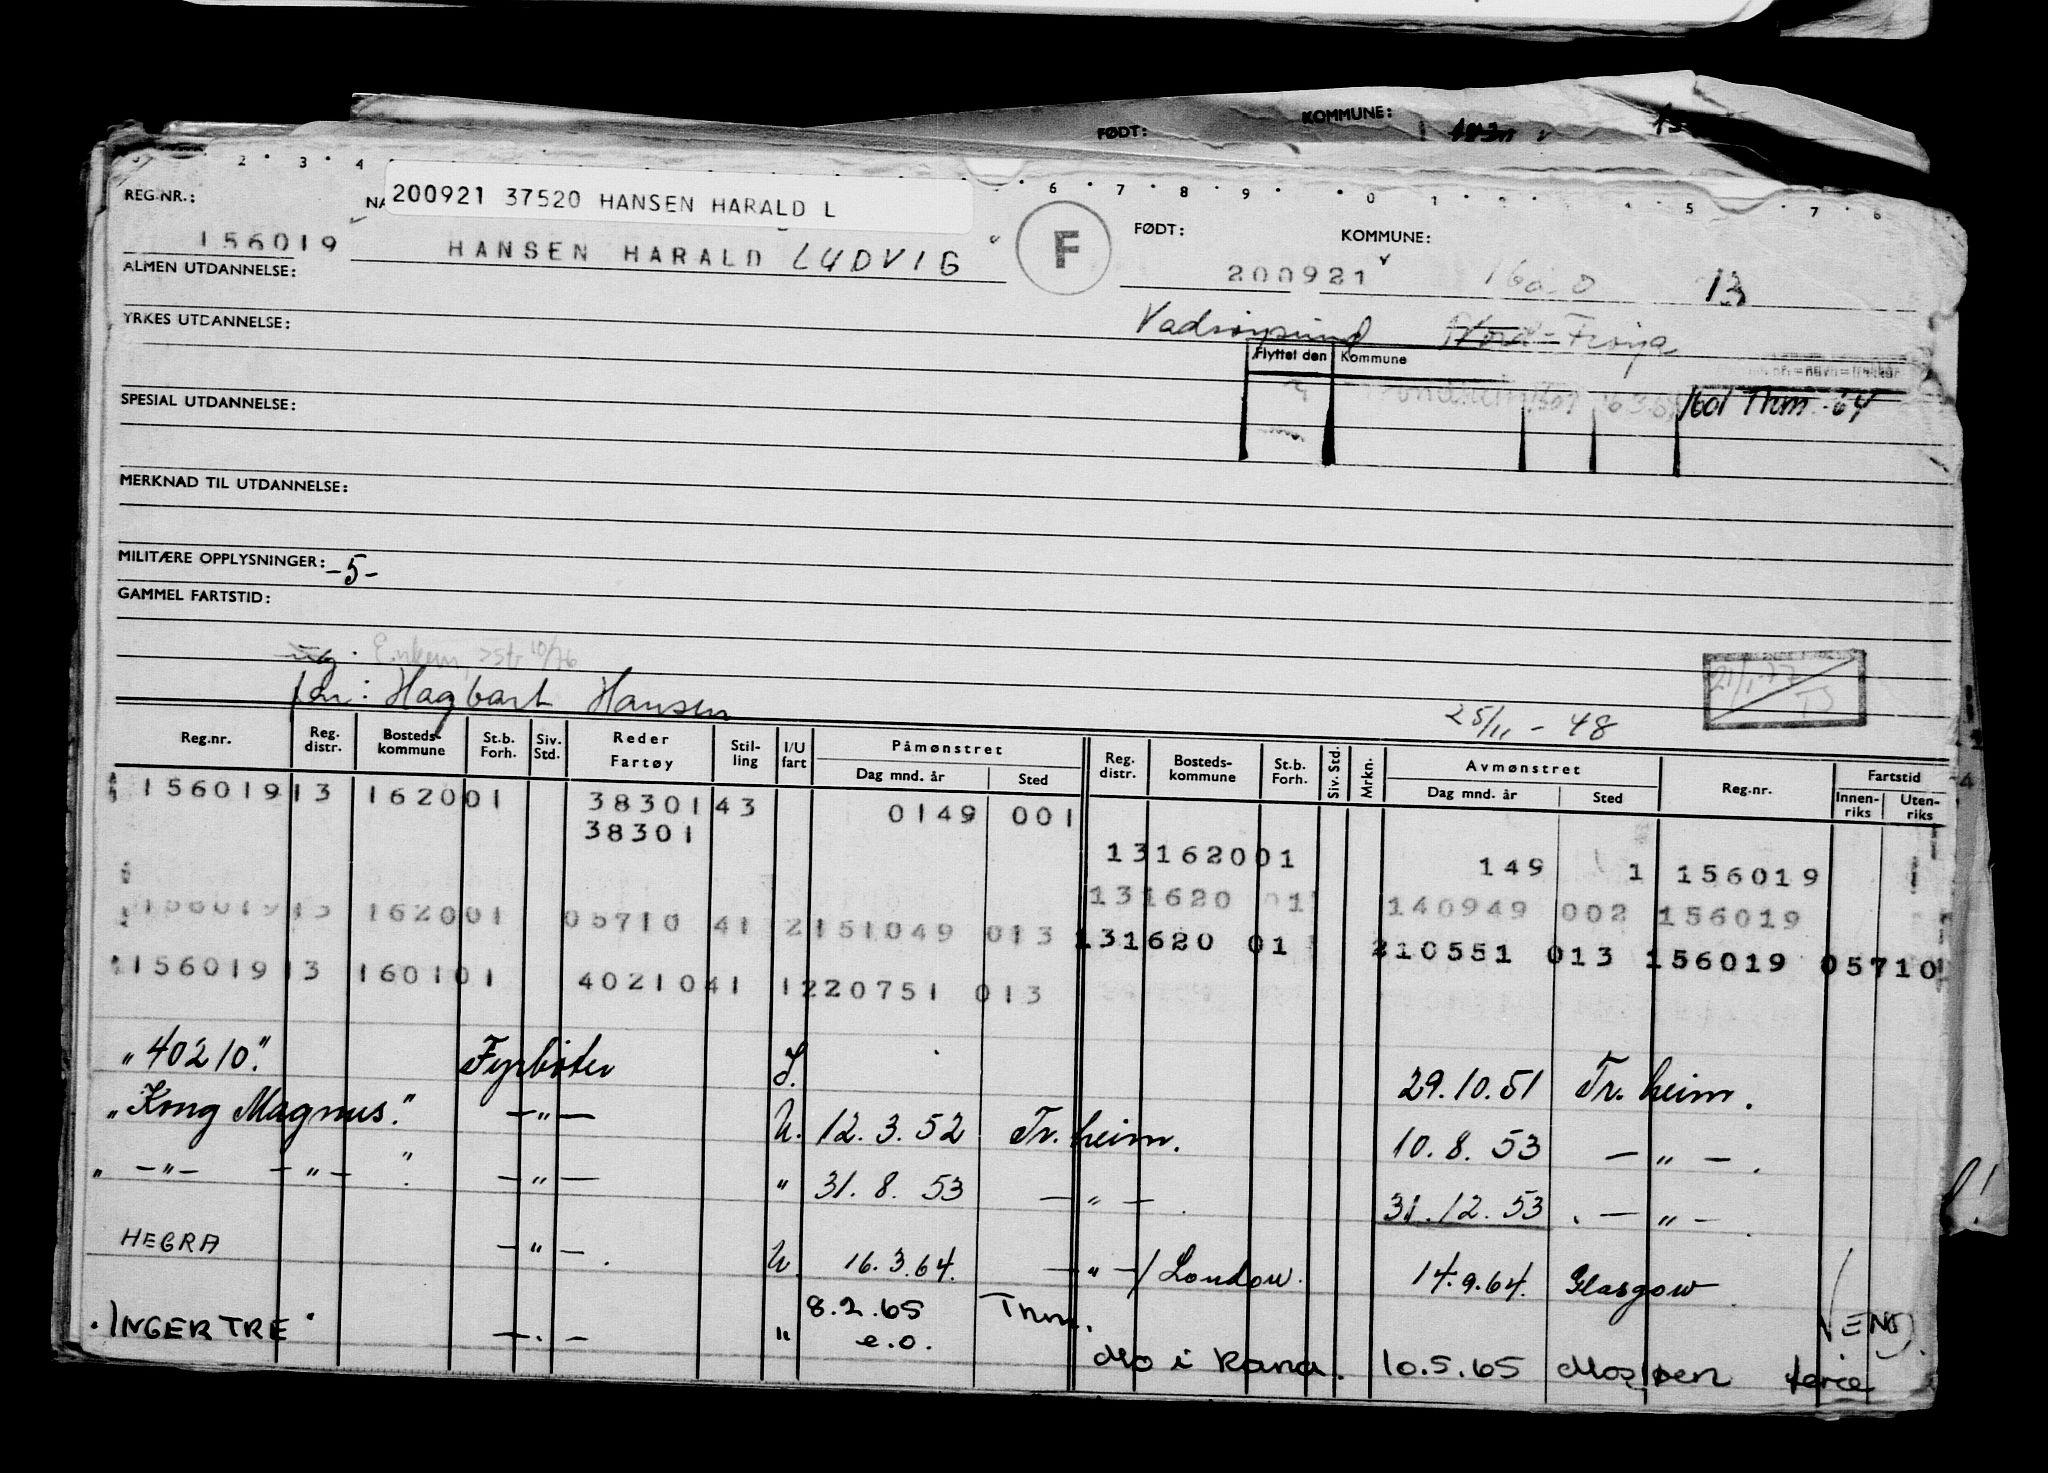 FØDT: KOMMUNE:
2 · 3 · 4 6 · 7 · 8 · 9 · · 0 1 5 7 · 6
REG.NR.: 200921 37520 HANSEN HARALD L FØDT: KOMMUNE:
156019 HANSEN HARALD LUDVIG F 200921 13
ALMEN UTDANNELSE:
YRKES UTDANNELSE: Frøya
Flyttet den Kommune
SPESIAL UTDANNELSE: 1601 Thm -64
MERKNAD TIL UTDANNELSE:
MILITÆRE OPPLYSNINGER: -5-
GAMMEL FARTSTID:
10/76
far: Hagbart Hansen 25/11 - 48
Reg.nr. Reg. distr. Bosteds-kommune St.b. Forh. Siv. Std. Reder Fartøy Stil-ling I/U fart Påmønstret Dag mnd. år Sted Reg. distr. Bosteds-kommune St.b. Forh. Siv. Std. Mrkn. Avmønstret Dag mnd. år Sted Reg.nr. Fartstid Innen-riks Uten-riks
156019 13 1620 01 38301 43 0149 001
38301
13 1620 01 149 1 156019
131620 01 140949 002 156019
156019 13 1620 01 05710 41 2 151049 013
131620 01 210551 013 156019 05710
156019 13 1601 01 40210 41 1 220751 013
"40210" Fyrbøter I. 29.10.51 Tr.heim.
"Kong Magnus." — " — U. 12.3.52 Tr.heim. 10.8.53 — " — .
" — " — — " — " — " — " 31.8.53 — " — . 31.12.53 . — " —
HEGRA — " — . U. 16.3.64. — " — / London. 14.9.64. Glasgow
"INGERTRE" — " — " 8.2.65 Thm.
e.o. Mo i Rana. 10.5.65 Mosjøen ferie